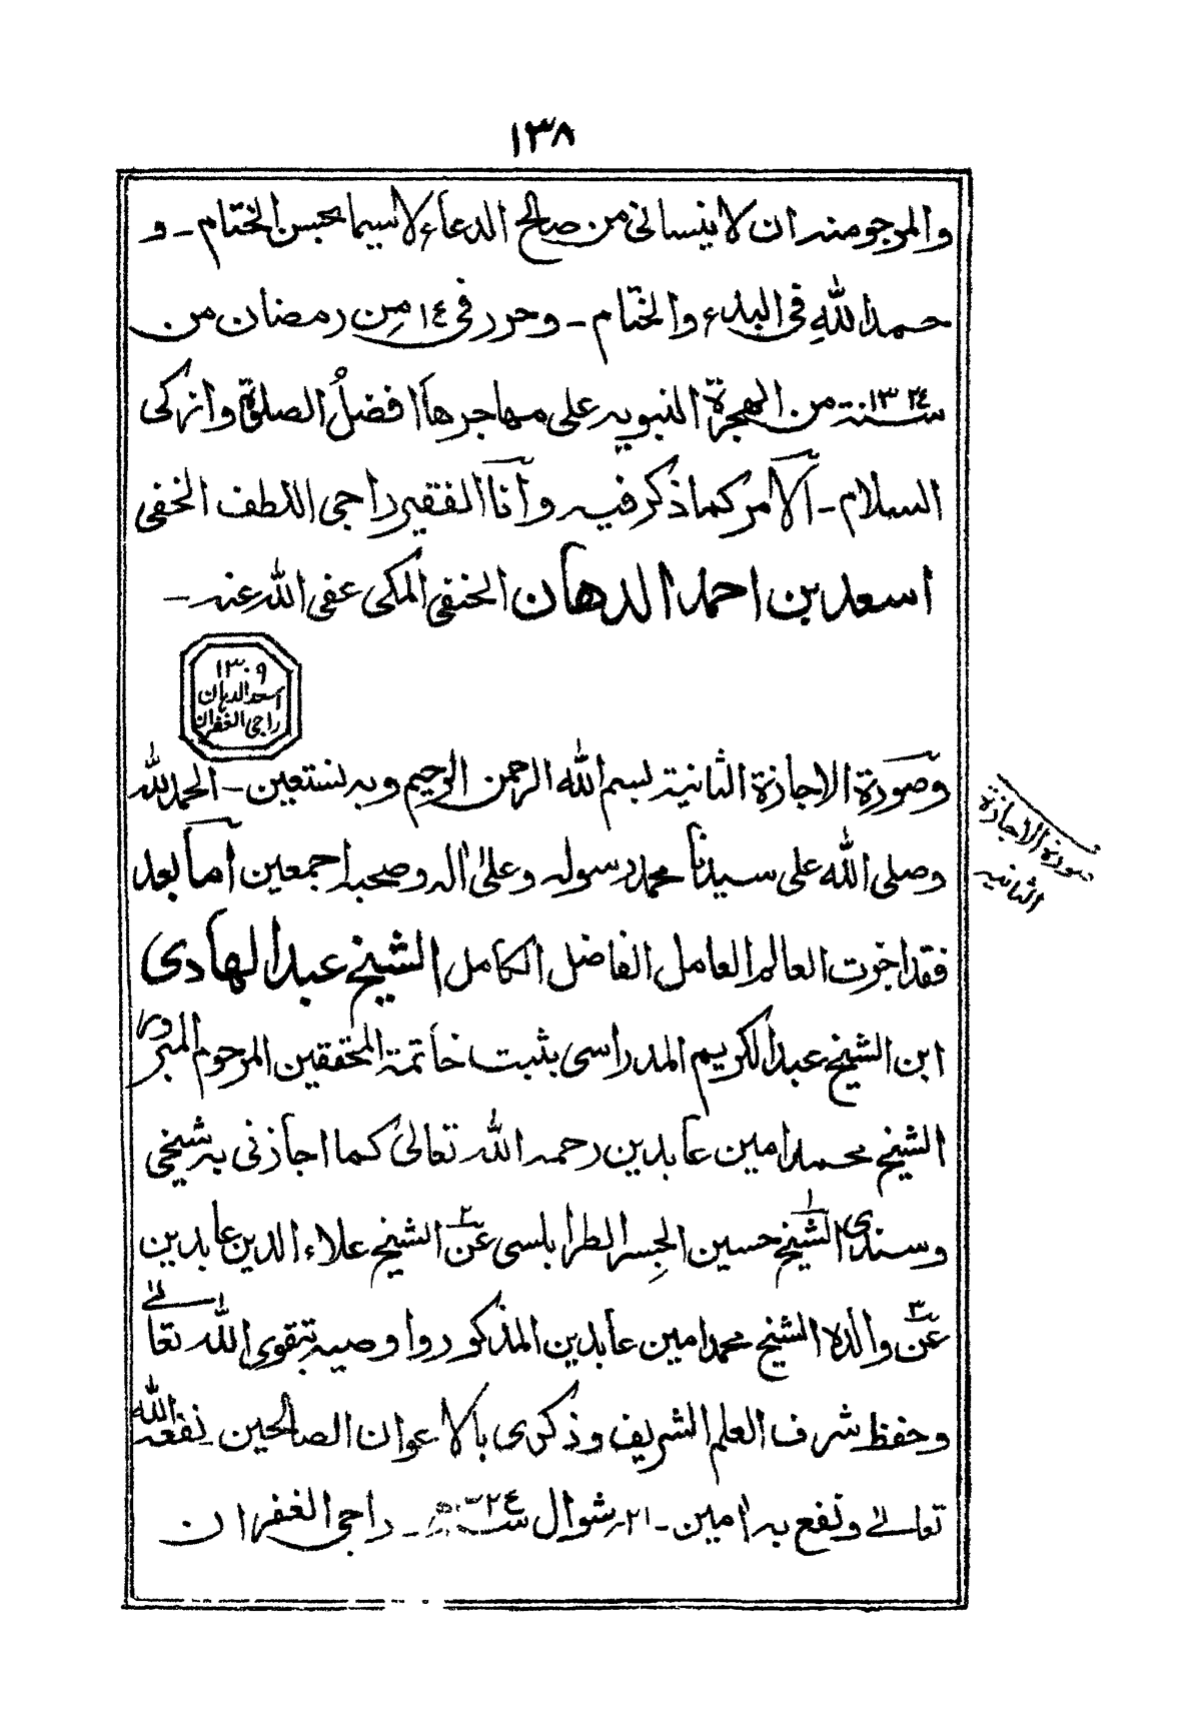 ١٣٨
والمرجو منه ان لا ينسانى من صالح الدعاء لا سيما بحسن الختام ـ و
حمدا للهِ فى البدء والختام ـ وحرر فى ١٤ مِن رمضان من
سنة ١٣٢٤ من الهجرة النبويه على مهاجرها افضلُ الصلوة وازكى
السلام ـ الامر كما ذكر فيه وانا الفقير راجى اللطف الخفى
اسعد بن احمد الدهان الحنفى المكى عفى الله عنه ـ
١٣٠٩
اسعد الدهان
راجى الغفران
وصورة الاجازة الثانية بسم الله الرحمن الرحيم وبه نستعين ـ الحمد لله
صورة الاجازة
الثانيه
وصلى الله على سيدنا محمد رسوله وعلىٰ اٰله وصحبه اجمعين اما بعد
فقد اجزت العالم العامل الفاضل الكامل الشيخ عبد الهادى
ابن الشيخ عبد الكريم المدراسى بثبت خاتمة المحققين المرحوم المبرور
الشيخ محمد امين عابدين رحمه الله تعالىٰ كما اجازنى به شيخى
وسندى الشيخ١ حسين الجِسر الطرابلسى عن٢ الشيخ علاء الدين عابدين
عن٣ والده الشيخ محمد امين عابدين المذكور واوصيه بتقوى الله تعالے
وحفظ شرف العلم الشريف وذكرى بالاعوان الصالحين نفعه الله
تعالے ونفع به امين ـ ٢١ شوال سنة ٢٤ هـ ـ راجى الغفران